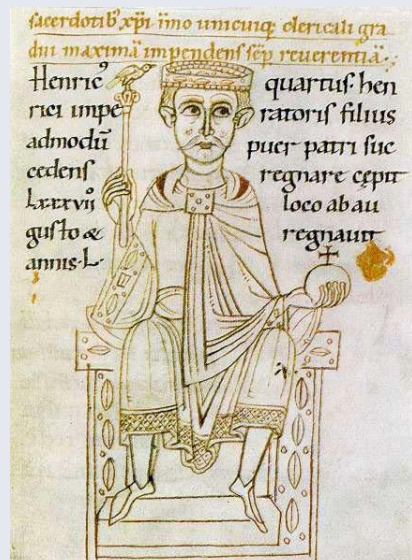 sacerdotibꝰ xp̄i īmo unicuiq; clericali gra
dui maximā impendens sēp reverentiā.
Henricꝰ quartus hen
rici impe ratoris filius
admodū puer patri suc
cedens regnare cępit
Lxxxvıı° loco ab au
gusto & regnavit
annis·L·